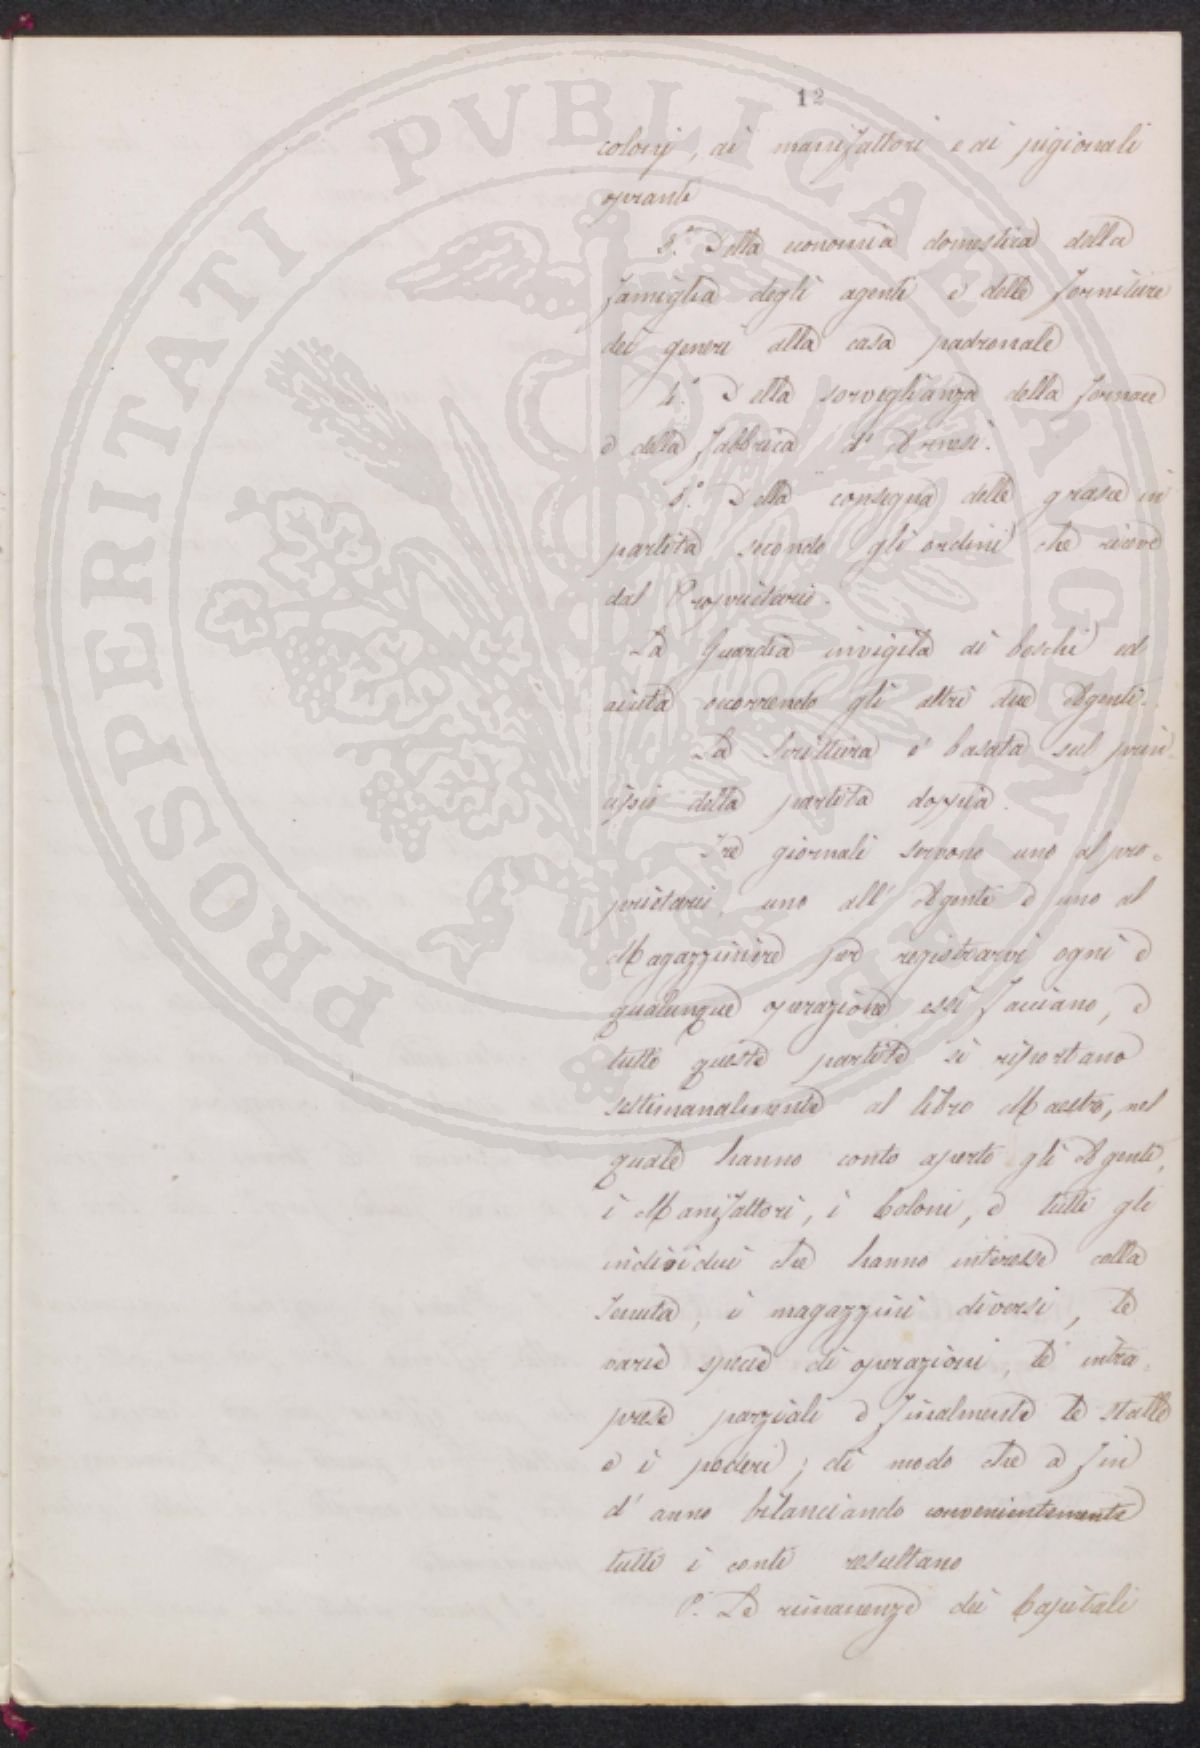 12
coloni, ai manifattori e ai pigionali
opranti
3.° Della economia domestica della
famiglia degli agenti e delle forniture
dei generi alla casa padronale
4.° Della sorveglianza della fornace
e della fabbrica d' Arnesi.
5.° Della consegna delle grasce in
partita secondo gli ordini che riceve
dal Proprietario.
La Guardia invigila ai boschi ed
aiuta occorrendo gli altri due Agenti.
La Scrittura è basata sul prin-
cipio della partita doppia.
Tre giornali servono uno al pro-
prietario, uno all' Agente e uno al
Magazziniere per registrarvi ogni e
qualunque operazione essi facciano, e
tutte queste partite si riportano
settimanalmente al libro Maestro, nel
quale hanno conto aperto gli Agenti,
i Manifattori, i Coloni, e tutti gli
individui che hanno interesse colla
Tenuta, i magazzini diversi, le
varie specie di operazioni, le intra-
prese parziali e finalmente le stalle
e i poderi; di modo che a fin
d' anno bilanciando convenientemente
tutti i conti resultano
1.° Le rimanenze dei Capitali
PROSPERITATI PVBLICAE AVGENDAE